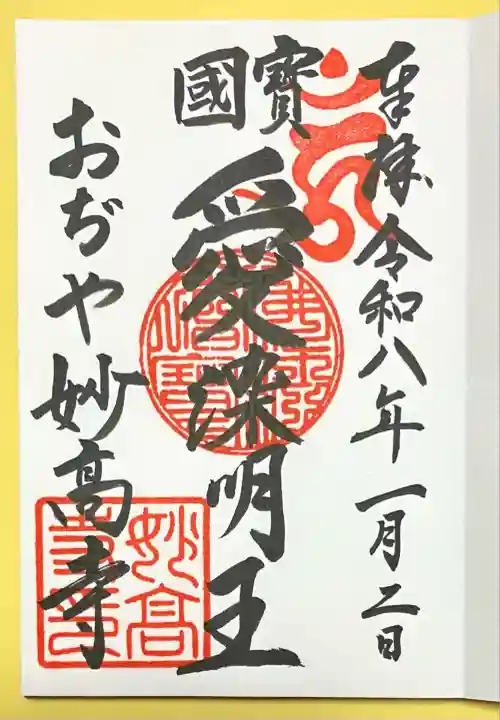 奉拝 令和八年 一月二日
寶國
愛染明王
おぢや 妙高寺
妙高寺印